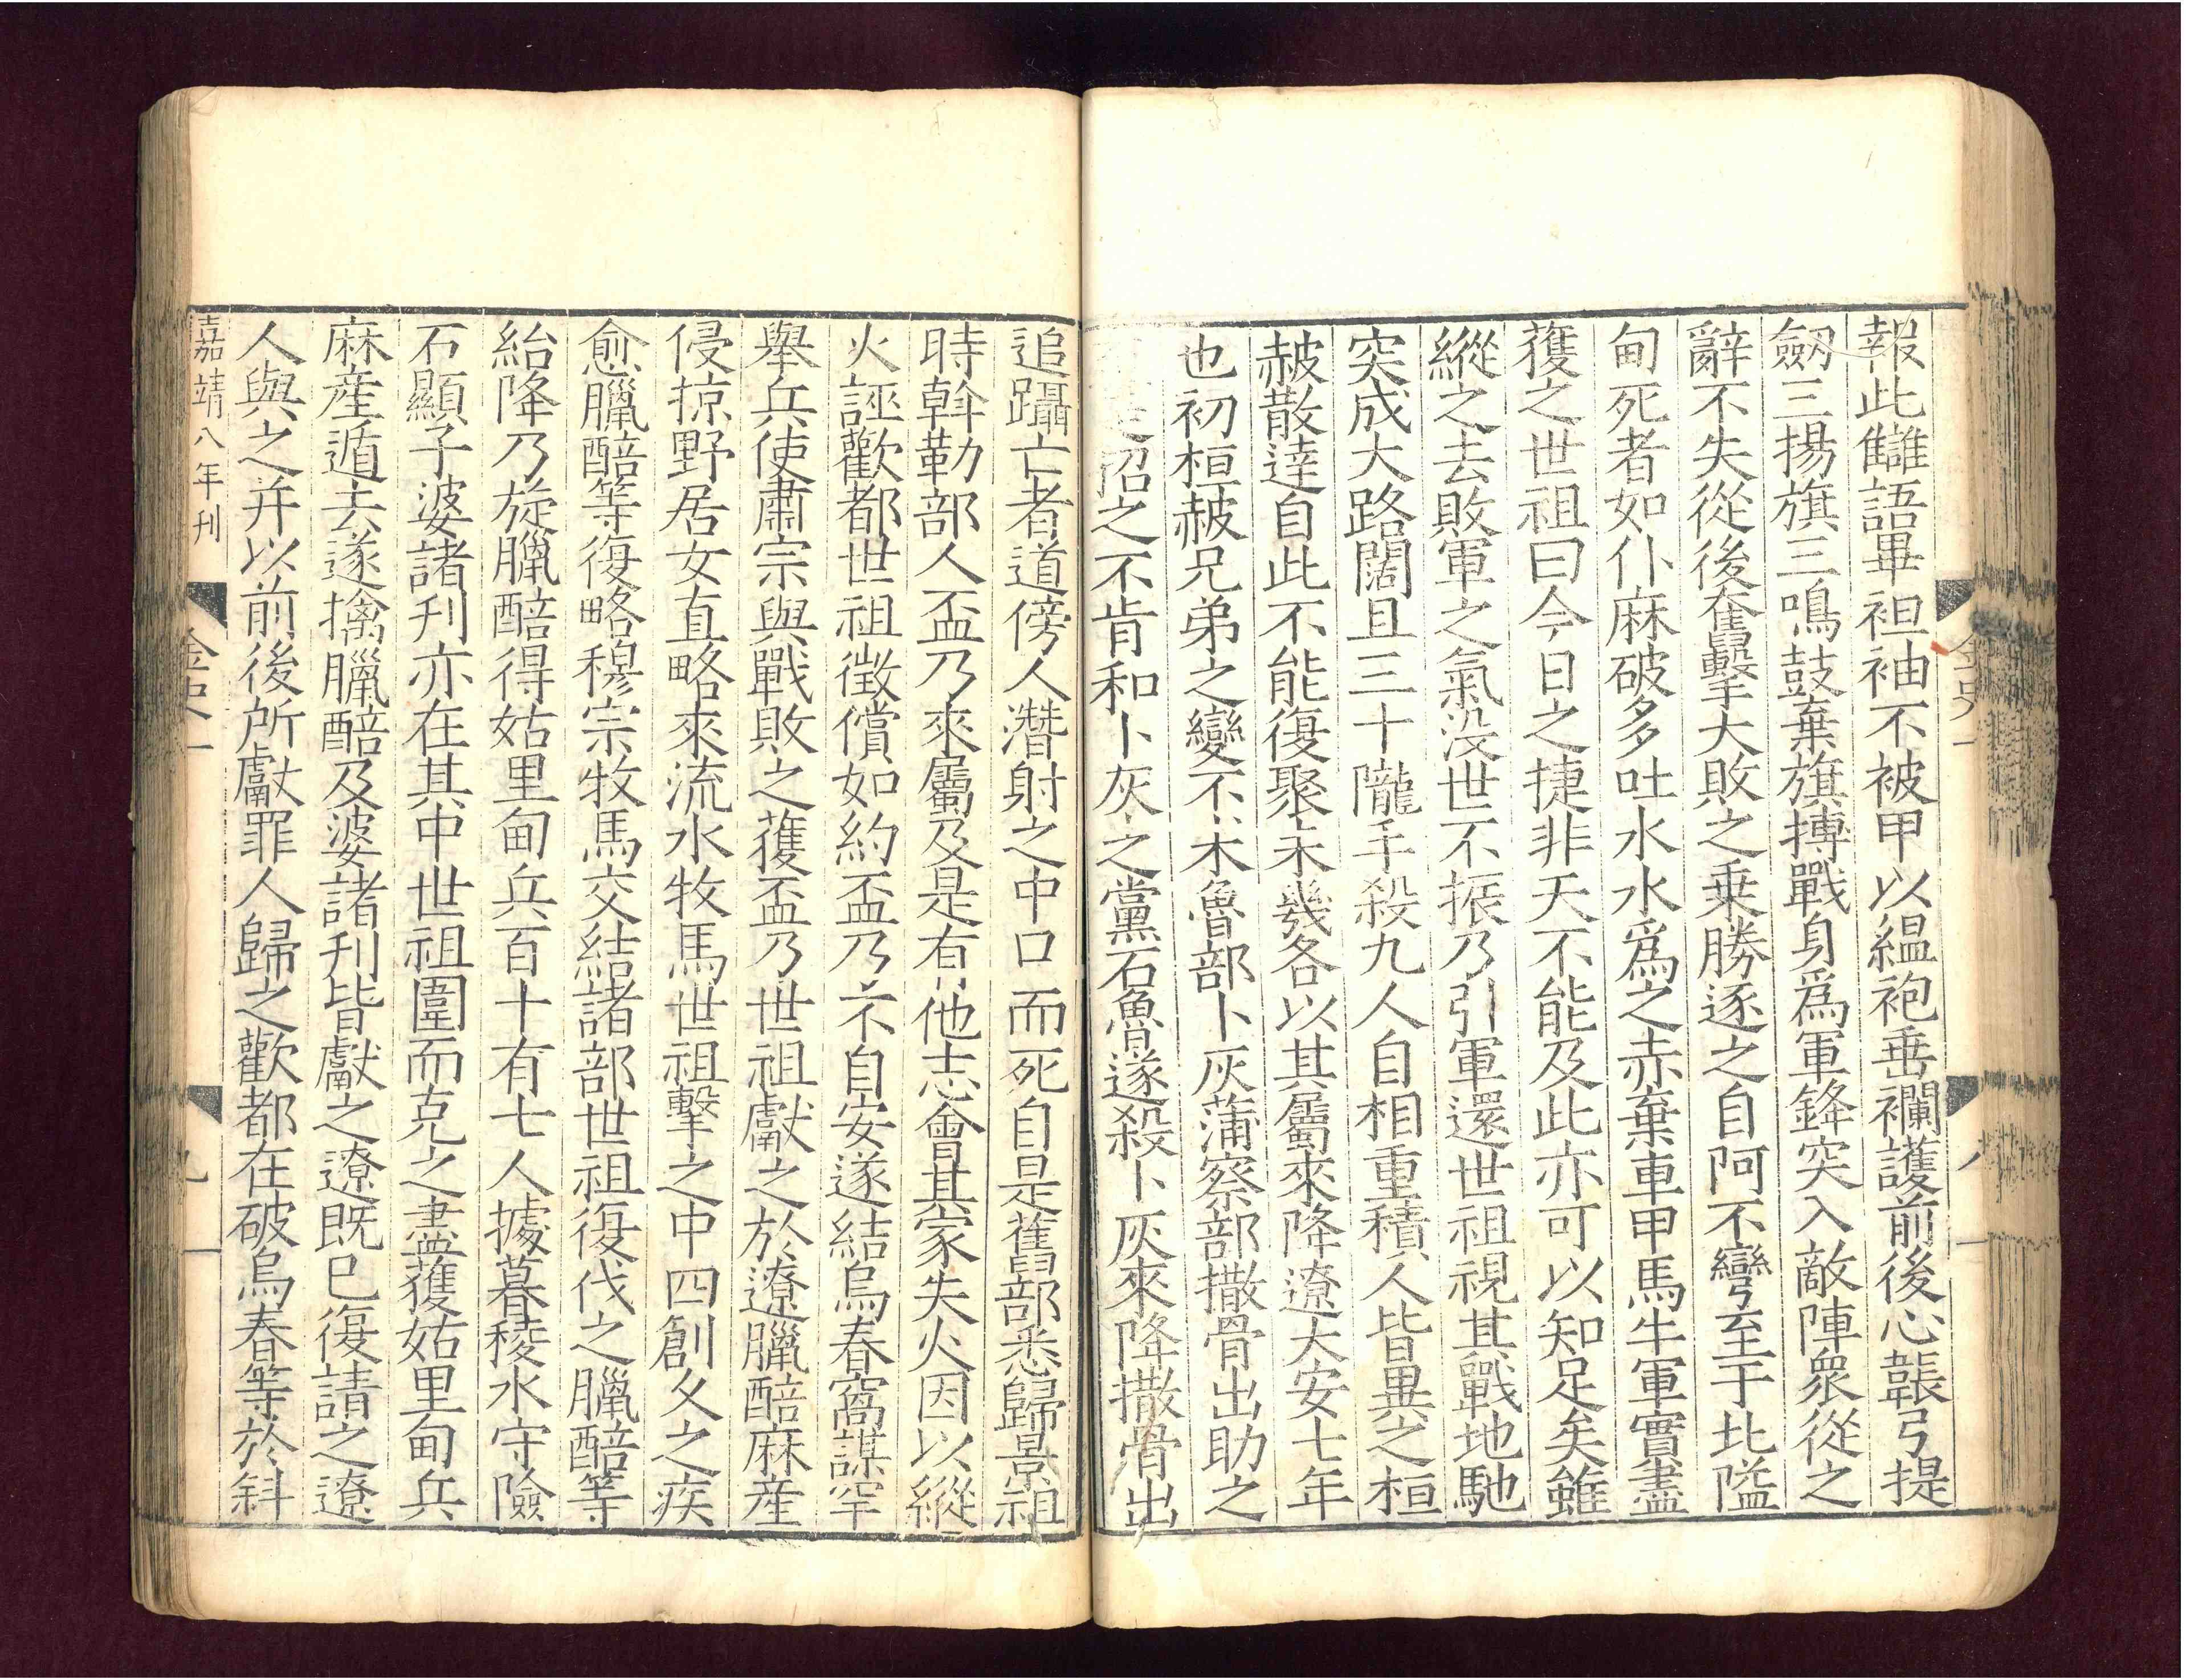 報此讎語畢袒袖不被甲以緼袍垂襴護前後心韔弓提
劒三揚旗三鳴鼓棄旗搏戰身爲軍鋒突入敵陣衆從之
辭不失從後奮擊大敗之乗勝逐之自阿不彎至于北隘
甸死者如仆麻破多吐水水爲之赤棄車甲馬牛軍實盡
獲之世祖曰今日之捷非天不能及此亦可以知足矣雖
縱之去敗軍之氣没世不振乃引軍還世祖視其戰地馳
突成大路闊且三十隴手殺九人自相重積人皆異之桓
赧散達自此不能復聚未幾各以其屬來降遼大安七年
也初桓赧兄弟之變不术魯部卜灰蒲察部撒骨出助之
招之不肯和卜灰之黨石魯遂殺卜灰來降撒骨出
追躡亡者道傍人潛射之中口而死自是舊部悉歸景祖
時斡勒部人盃乃來屬及是有他志會其家失火因以縱
火誣歡都世祖徵償如約盃乃不自安遂結烏春窩謀罕
舉兵使肅宗與戰敗之獲盃乃世祖獻之於遼臘醅麻産
侵掠野居女直略來流水牧馬世祖擊之中四創久之疾
愈臘醅等復略穆宗牧馬交結諸部世祖復伐之臘醅等
紿降乃旋臘醅得姑里甸兵百十有七人據暮稜水守險
石顯子婆諸刋亦在其中世祖圍而克之盡獲姑里甸兵
麻産遁去遂擒臘醅及婆諸刋皆獻之遼既已復請之遼
人與之并以前後所獻罪人歸之歡都在破烏春等於斜
嘉靖八年刊
金史一
九